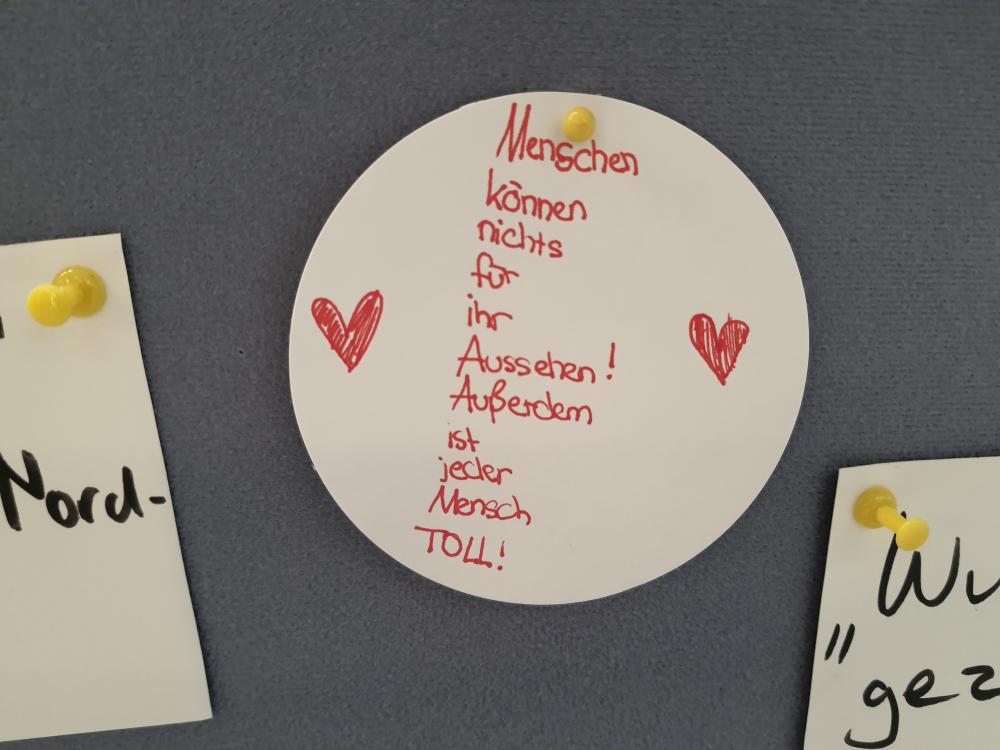 Menschen
können
nichts
für
ihr
Aussehen!
Außerdem
ist
jeder
Mensch
TOLL!
Nord-
Wu
"gez